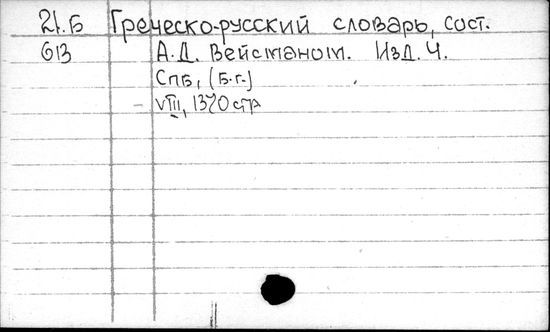 21.Б Греческо-русский словарь, сост.
613 А.Д. Вейсманом. Изд. 4.
Спб, (Б.г.)
VIII, 1370 стр